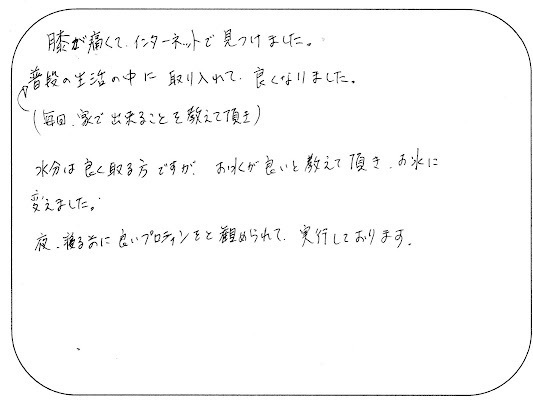 膝が痛くて、インターネットで見つけました。
普段の生活の中に取り入れて、良くなりました。
(毎日、家で出来ることを教えて頂き)
水分は良く取る方ですが、お水が良いと教えて頂き、お水に
変えました。
夜、寝る前に良いプロテインをと勧められて、実行しております。